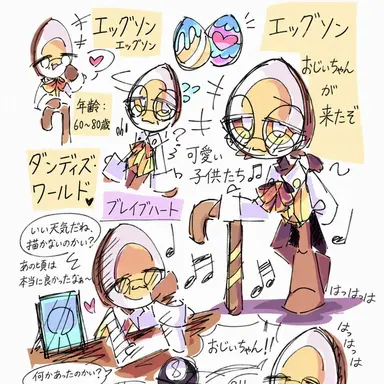 エッグソン
エッグソン
年齢：
60～80歳
エッグソン
おじいちゃん
が
来たぞ
可愛い
子供たち♫
ダンディズ・
ワールド♥
ブレイブハート
いい天気だね、
描かないのかい？
あの頃は
本当に良かったなぁ～
何かあったのかい？
おじぃちゃん!!
8
はっはっは
はっはっは